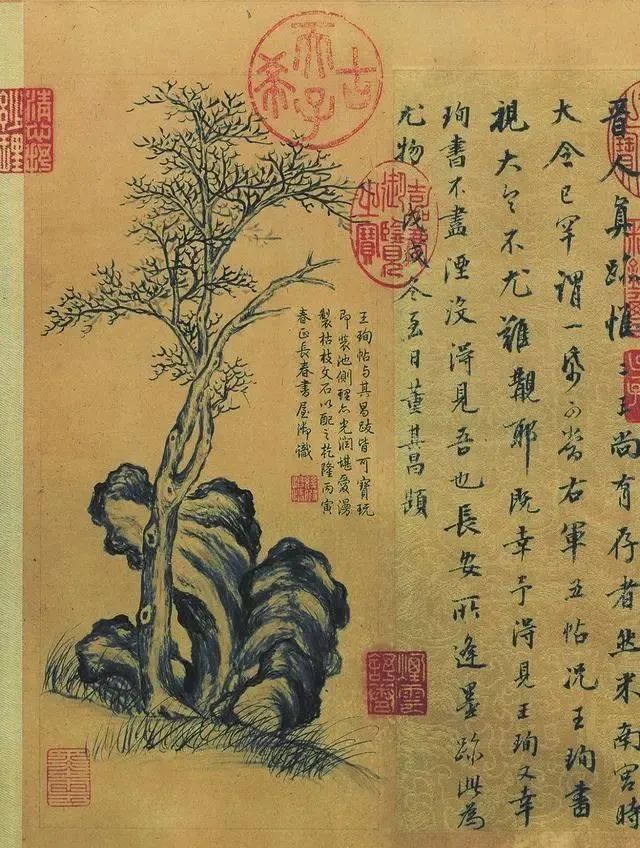 晉人真跡惟二王尚有存者然米南宮時
大令已罕謂一帋可當右軍五帖況王珣書
視大令不尤難覯耶既幸予得見王珣又幸
珣書不盡湮沒得見吾也長安所逢墨跡此為
尤物 戊戌冬至日董其昌題
王珣帖与其昌跋皆可寶玩
即裝池側理亦光潤堪愛漫
製枯枝文石以配之乾隆丙寅
春正長春書屋御識
古希天子
嘉慶御覽之寶